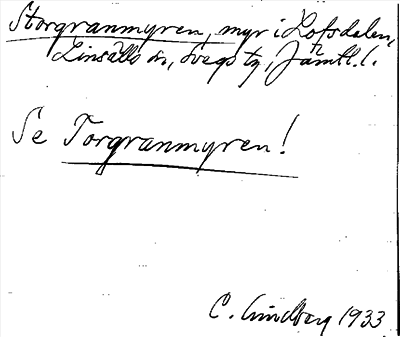 Storgranmyren, myr i Lofsdalen,
Linsälls sn, Svegs tg, Jämtl. l.
Se Torgranmyren!
C. Lindberg 1933